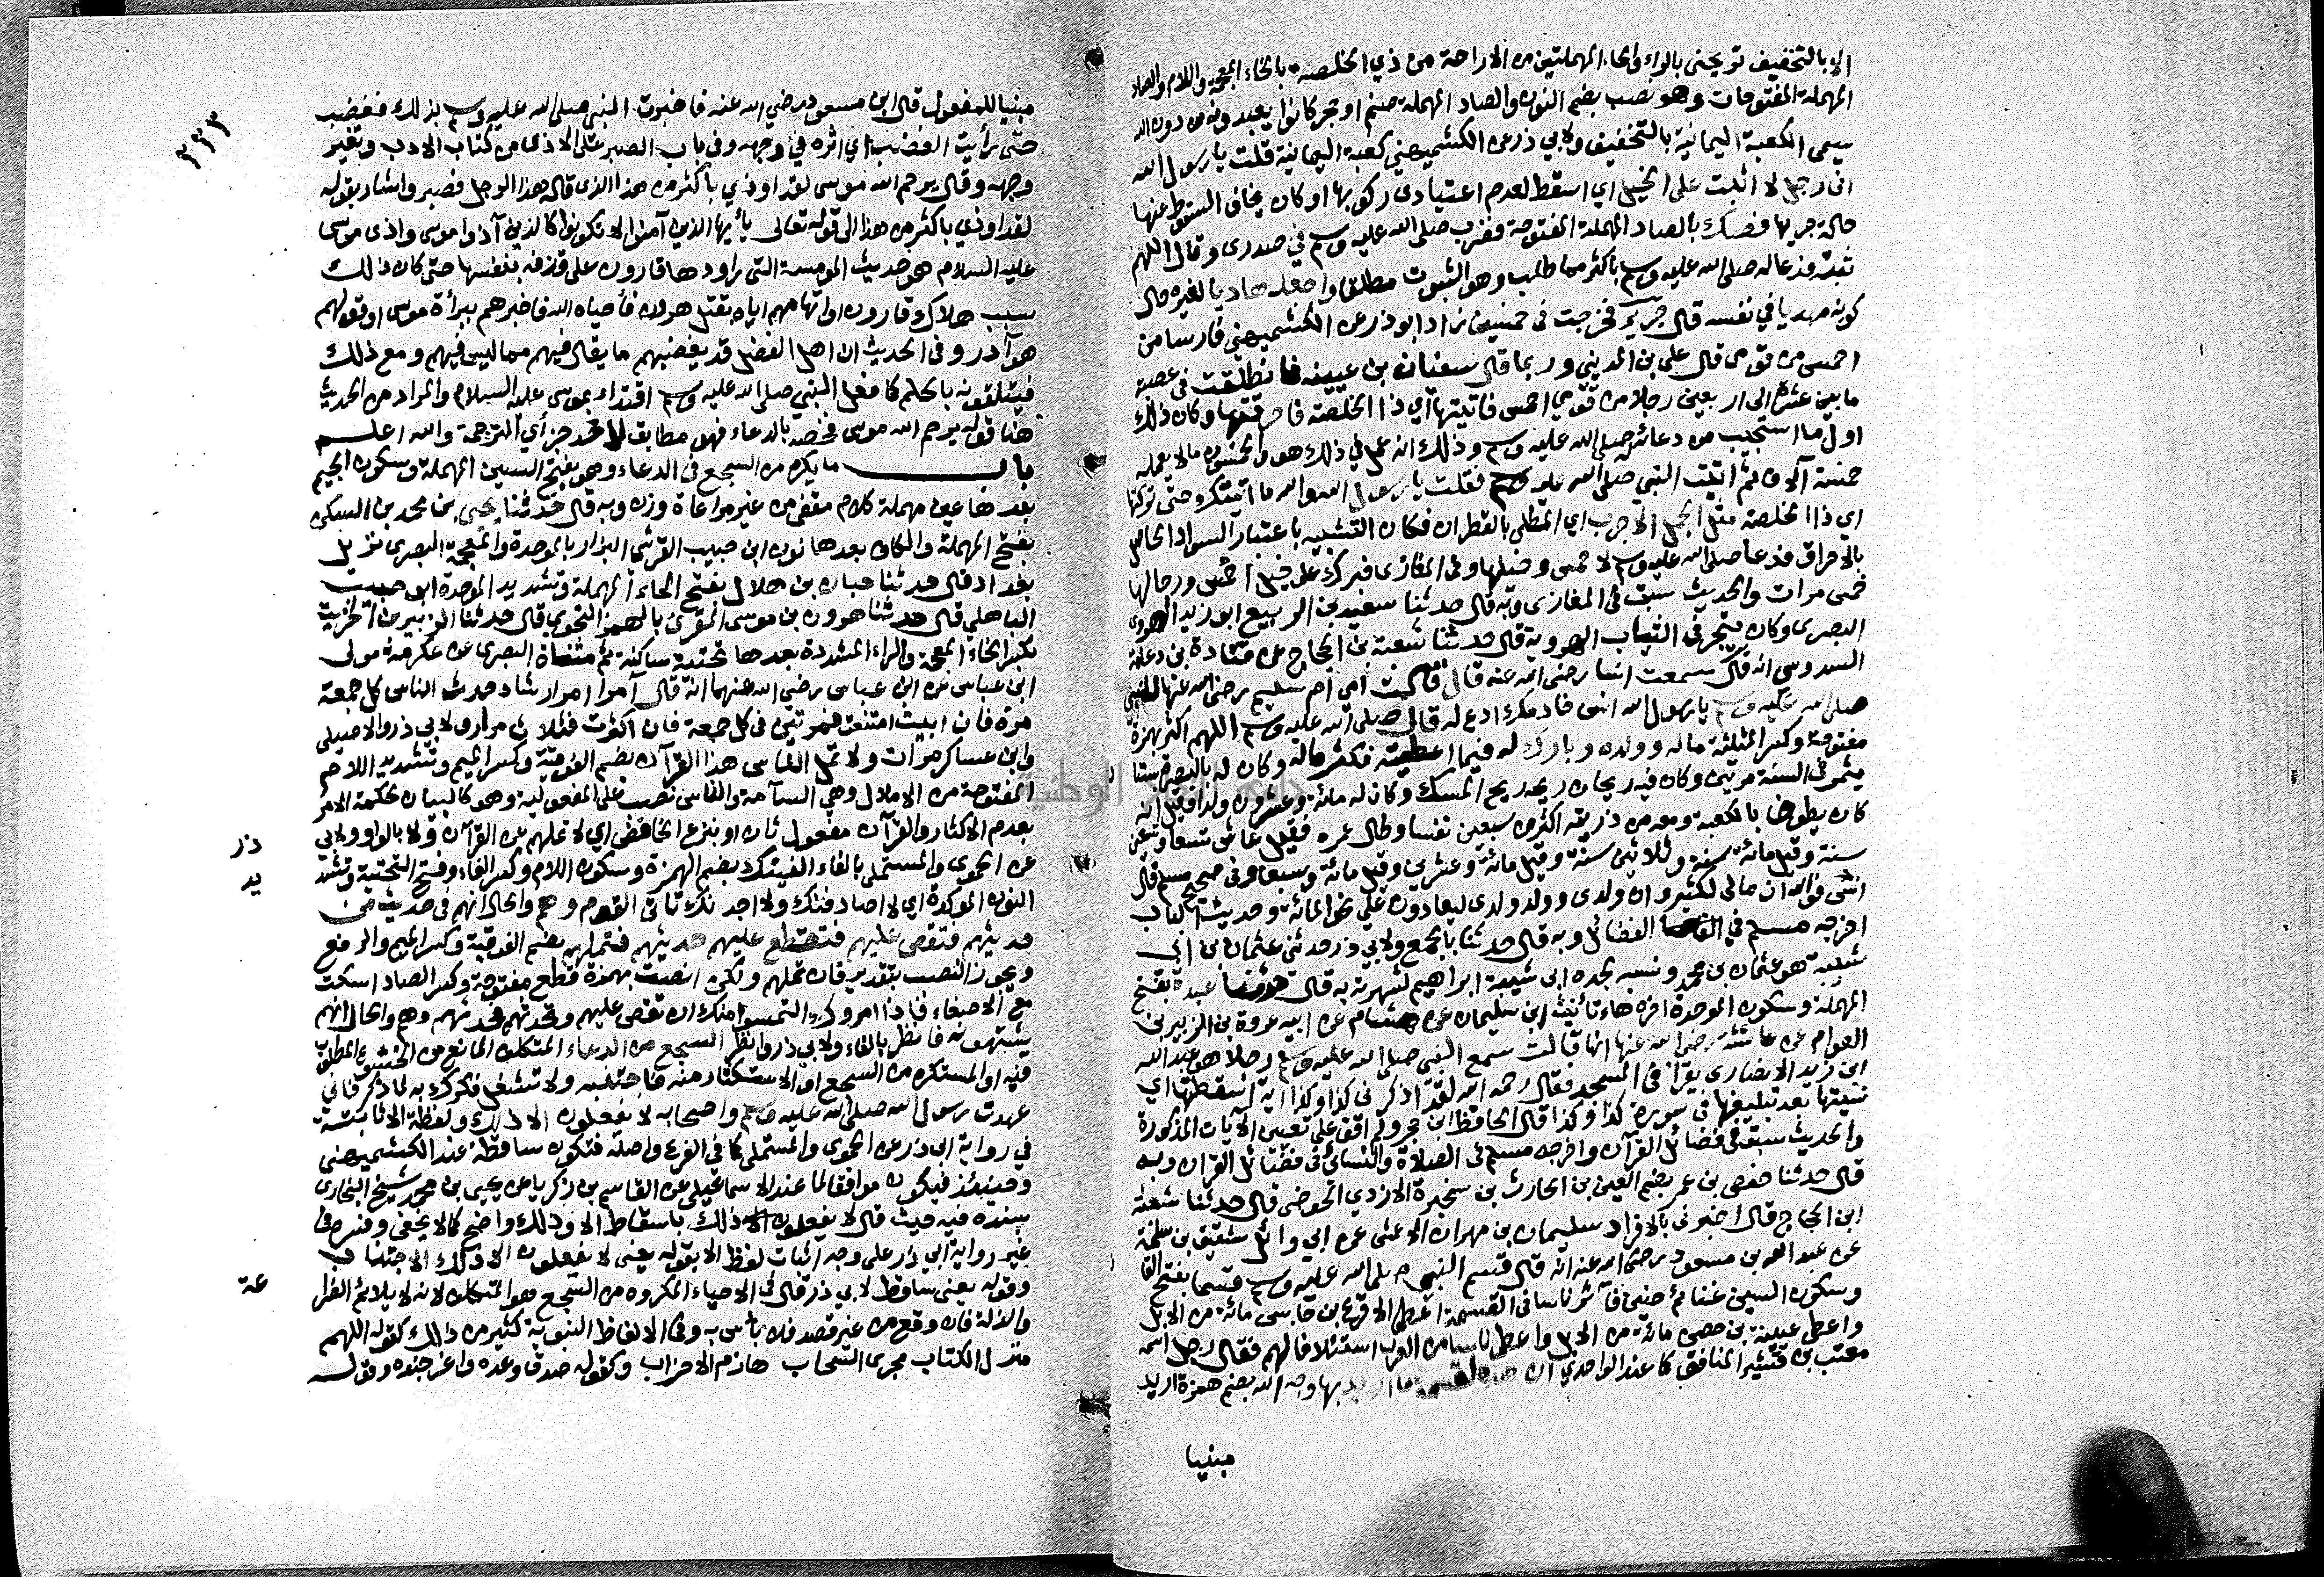 الا بالتخفيف تريحني بالراء والحاء المهملتين من الاراحة من ذي الخلصة بالخاء المعجمة واللام والصاد
المهملة المفتوحات وهو نصب بضم النون والصاد المهملة صنم او حجر كانوا يعبدونه من دون الله
يسمى الكعبة اليمانية بالتخفيف ولابي ذر عن الكشميهني كعبة اليمانية قلت يا رسول الله
اني رجل لا اثبت على الخيل اي اسقط لعدم اعتيادى ركوبها او كان يخاف السقوط عنها
حالة جريها فصك بالصاد المهملة المفتوحة فضرب صلى الله عليه وسلم في صدرى وقال اللهم
ثبته فدعا له صلى الله عليه وسلم باكثر مما طلب وهو الثبوت مطلقا واجعله هاديا لغيره حال
كونه مهديا في نفسه قال جرير فخرجت في خمسين زاد ابو ذر عن الكشميهني فارسا من
احمس من قومى قال على بن المديني وربما قال سفيان بن عيينه فانطلقت في عصبة
ما بين عشرة الى اربعين رجلا من قومي احمس فاتيتها اي ذا الخلصة فاحرقتها وكان ذلك
اول ما استجيب من دعائه صلى الله عليه وسلم وذلك انه عمل في ذلك هو والخمسون مالا يعمله
خمسة آلاف ثم اتيت النبي صلى الله عليه وسلم فقلت يا رسول الله والله ما اتيتك حتى تركتها
اي ذا الخلصة مثل الجمل الاجرب اي المطلى بالقطران فكان التشبيه باعتبار السواد الحاصل
بالاحراق فدعا صلى الله عليه وسلم لاحمس وخيلها وفى المغازى فبرك على خيل احمس ورجالها
خمس مرات والحديث سبق في المغازى وبه قال حدثنا سعيد بن الربيع ابو زيد الهروى
البصرى وكان يتجر فى الثياب الهروية قال حدثنا شعبة بن الحجاج عن قتادة بن دعامة
السدوسى انه قال سمعت انسا رضى الله عنه قال قالت امي ام سليم رضى الله عنها للنبي
صلى الله عليه وسلم يا رسول الله انس خادمك ادع له قال صلى الله عليه وسلم اللهم اكثر بهمزة
مفتوحة وكسر المثلثة ماله وولده وبارك له فيما اعطيته فكثر ماله وكان له بالبصرة بستان
يثمر فى السنة مرتين وكان فيه ريحان ريحه ريح المسك وكان له مائة وعشرون ولدا وقيل انه
كان يطوف بالكعبة ومعه من ذريته اكثر من سبعين نفسا وطال عمره فقيل عاش تسعا وتسعين
سنة وقيل مائة سنة وثلاثين سنة وقيل مائة وعشرين وقيل مائة وسبعا وفى صحيح مسلم قال
انس فوالله ان مالى لكثير وان ولدى وولد ولدى ليعادون على نحو المائة وحديث الباب
اخرجه مسلم في الفضائل وبه قال حدثنا بالجمع ولابي ذر حدثني عثمان بن ابى
شيبة هو عثمان بن محمد ونسبه لجده ابى شيبة ابراهيم لشهرته به قال حدثنا عبدة بفتح
المهملة وسكون الموحدة اخره هاء تانيث ابن سليمان عن هشام عن ابيه عروة بن الزبير بن
العوام عن عائشة رضى الله عنها انها قالت سمع النبي صلى الله عليه وسلم رجلا هو عبد الله
ابن زيد الانصارى يقرا فى المسجد فقال رحمه الله لقد اذكرنى كذا وكذا اية اسقطتها اي
نسيتها بعد تبليغها في سورة كذا وكذا قال الحافظ ابن حجر ولم اقف على تعيين الآيات المذكورة
والحديث سبق في فضائل القرآن واخرجه مسلم فى الصلاة والنسائى فى فضائل القران وبه
قال حدثنا حفص بن عمر بضم العين بن الحارث بن سخبرة الازدي الحوضى قال حدثنا شعبة
ابن الحجاج قال اخبرنى بالافراد سليمان بن مهران الاعمش عن ابي وائل شقيق بن سلمة
عن عبد الله بن مسعود رضى الله عنه انه قال قسم النبي صلى الله عليه وسلم قسما بفتح القا
وسكون السين غنائم حنين فآثر ناسا فى القسمة اعطى الاقرع بن حابس مائة من الابل
واعطى عيينة بن حصن مائة من الابل واعطى ناسا من العرب استئلافا لهم فقال رجل اسمه
معتب بن قشير المنافق كما عند الواحدي ان هذه لقسمة ما اريد بها وجه الله بضم همزة اريد
مبنيا
٣٣٣
مبنيا للمفعول قال ابن مسعود رضي الله عنه فاخبرت النبي صلى الله عليه وسلم بذلك فغضب
حتى رأيت الغضب اي اثره في وجهه وفى باب الصبر على الاذى من كتاب الادب وتغير
وجهه وقال يرحم الله موسى لقد اوذي باكثر من هذا الذى قاله هذا الرجل فصبر واشار بقوله
لقد اوذي باكثر من هذا الى قوله تعالى يأيها الذين آمنوا لا تكونوا كالذين آذوا موسى واذى موسى
عليه السلام هو حديث المومسة التى راودها قارون على قذفه بنفسها حتى كان ذلك
سبب هلاك قارون او اتهامهم اياه بقتل هرون فأحياه الله فاخبرهم ببراءة موسى او قولهم
هو آدر وفى الحديث ان اهل الفضل قد يغضبهم ما يقال فيهم مما ليس فيهم ومع ذلك
فيتلقونه بالحلم كما فعل النبي صلى الله عليه وسلم اقتداء بموسى عليه السلام والمراد من الحديث
هنا قوله يرحم الله موسى فخصه بالدعاء فهو مطابق لاحد جزأي الترجمة والله اعلم
باب ما يكره من السجع في الدعاء وهو بفتح السين المهملة وسكون الجيم
بعدها عين مهملة كلام مقفى من غير مراعاة وزن وبه قال حدثنا يحيى بن محمد بن السكن
بفتح المهملة والكاف بعدها نون ابن حبيب القرشى البزار بالموحدة والمعجمة البصرى نزيل
بغداد قال حدثنا حبان بن هلال بفتح الحاء المهملة وتشديد الموحدة ابو حبيب
الباهلي قال حدثنا هرون بن موسى المقرئ بالهمز النحوى قال حدثنا الزبير بن الخريت
بكسر الخاء المعجمة والراء المشددة بعدها تحتية ساكنة ثم مثناة البصرى عن عكرمة مولى
ابن عباس عن ابن عباس رضي الله عنهما انه قال آمرا امر ارشاد حدث الناس كل جمعة
مرة فان ابيت امتنعت فمرتين فى كل جمعة فان اكثرت فثلاث مرار ولابي ذر والاصيلى
وابن عساكر مرات ولا تمل الناس هذا القرآن بضم الفوقية وكسر الميم وتشديد اللام
المفتوحة من الاملال وهي السآمة والناس نصب على المفعولية وهو كالبيان لحكمة الامر
بعدم الاكثار والقرآن مفعول ثان او بنزع الخافض اي لا تملهم عن القرآن ولا بالواو ولابي ذر
عن الحموى والمستملى بالفاء الفينك بضم الهمزة وسكون اللام وكسر الفاء وفتح التحتية وتشديد
النون الموكدة اي لا اصادفنك ولا اجدنك تاتى القوم وهم والحال انهم في حديث من
حديثهم فتقص عليهم فتقطع عليهم حديثهم فتملهم بضم الفوقية وكسر الميم والرفع
ويجوز النصب بتقدير فان تملهم ولكن انصت بهمزة قطع مفتوحة وكسر الصاد اسكت
مع الاصغاء فاذا امروك التمسوا منك ان تقص عليهم وتحدثهم فحدثهم وهم والحال انهم
يشتهونه فانظر بالفاء ولابي ذر وانظر السجع من الدعاء المتكلف المانع من الخشوع المطلوب
فيه او المستكره من السجع او الاستكثار منه فاجتنبه ولا تشغل فكرك به لما ذكر فانى
عهدت رسول الله صلى الله عليه وسلم واصحابه لا يفعلون الا ذلك ولفظة الا ثابتة
في رواية ابى ذر عن الحموى والمستملى كما فى الفرع واصله فتكون ساقطة عند الكشميهنى
وحينئذ فيكون موافقا لما عند الاسماعيلي عن القاسم بن زكريا عن يحيى بن محمد شيخ البخارى
بسنده فيه حيث قال لا يفعلون ذلك باسقاط الا وذلك واضح كما لا يخفى وفسره فى
غير رواية ابي ذر على وجه اثبات لفظ الا بقوله يعنى لا يفعلون الا ذلك الاجتناب
وقوله يعنى ساقط لابي ذر قال فى الاحياء المكروه من السجع هو المتكلف لانه لا يلائم الضراعة
والذلة فان وقع من غير قصد فلا بأس به وفى الالفاظ النبوية كثير من ذلك كقوله اللهم
منزل الكتاب مجرى السحاب هازم الاحزاب وكقوله صدق وعده واعز جنده وقوله